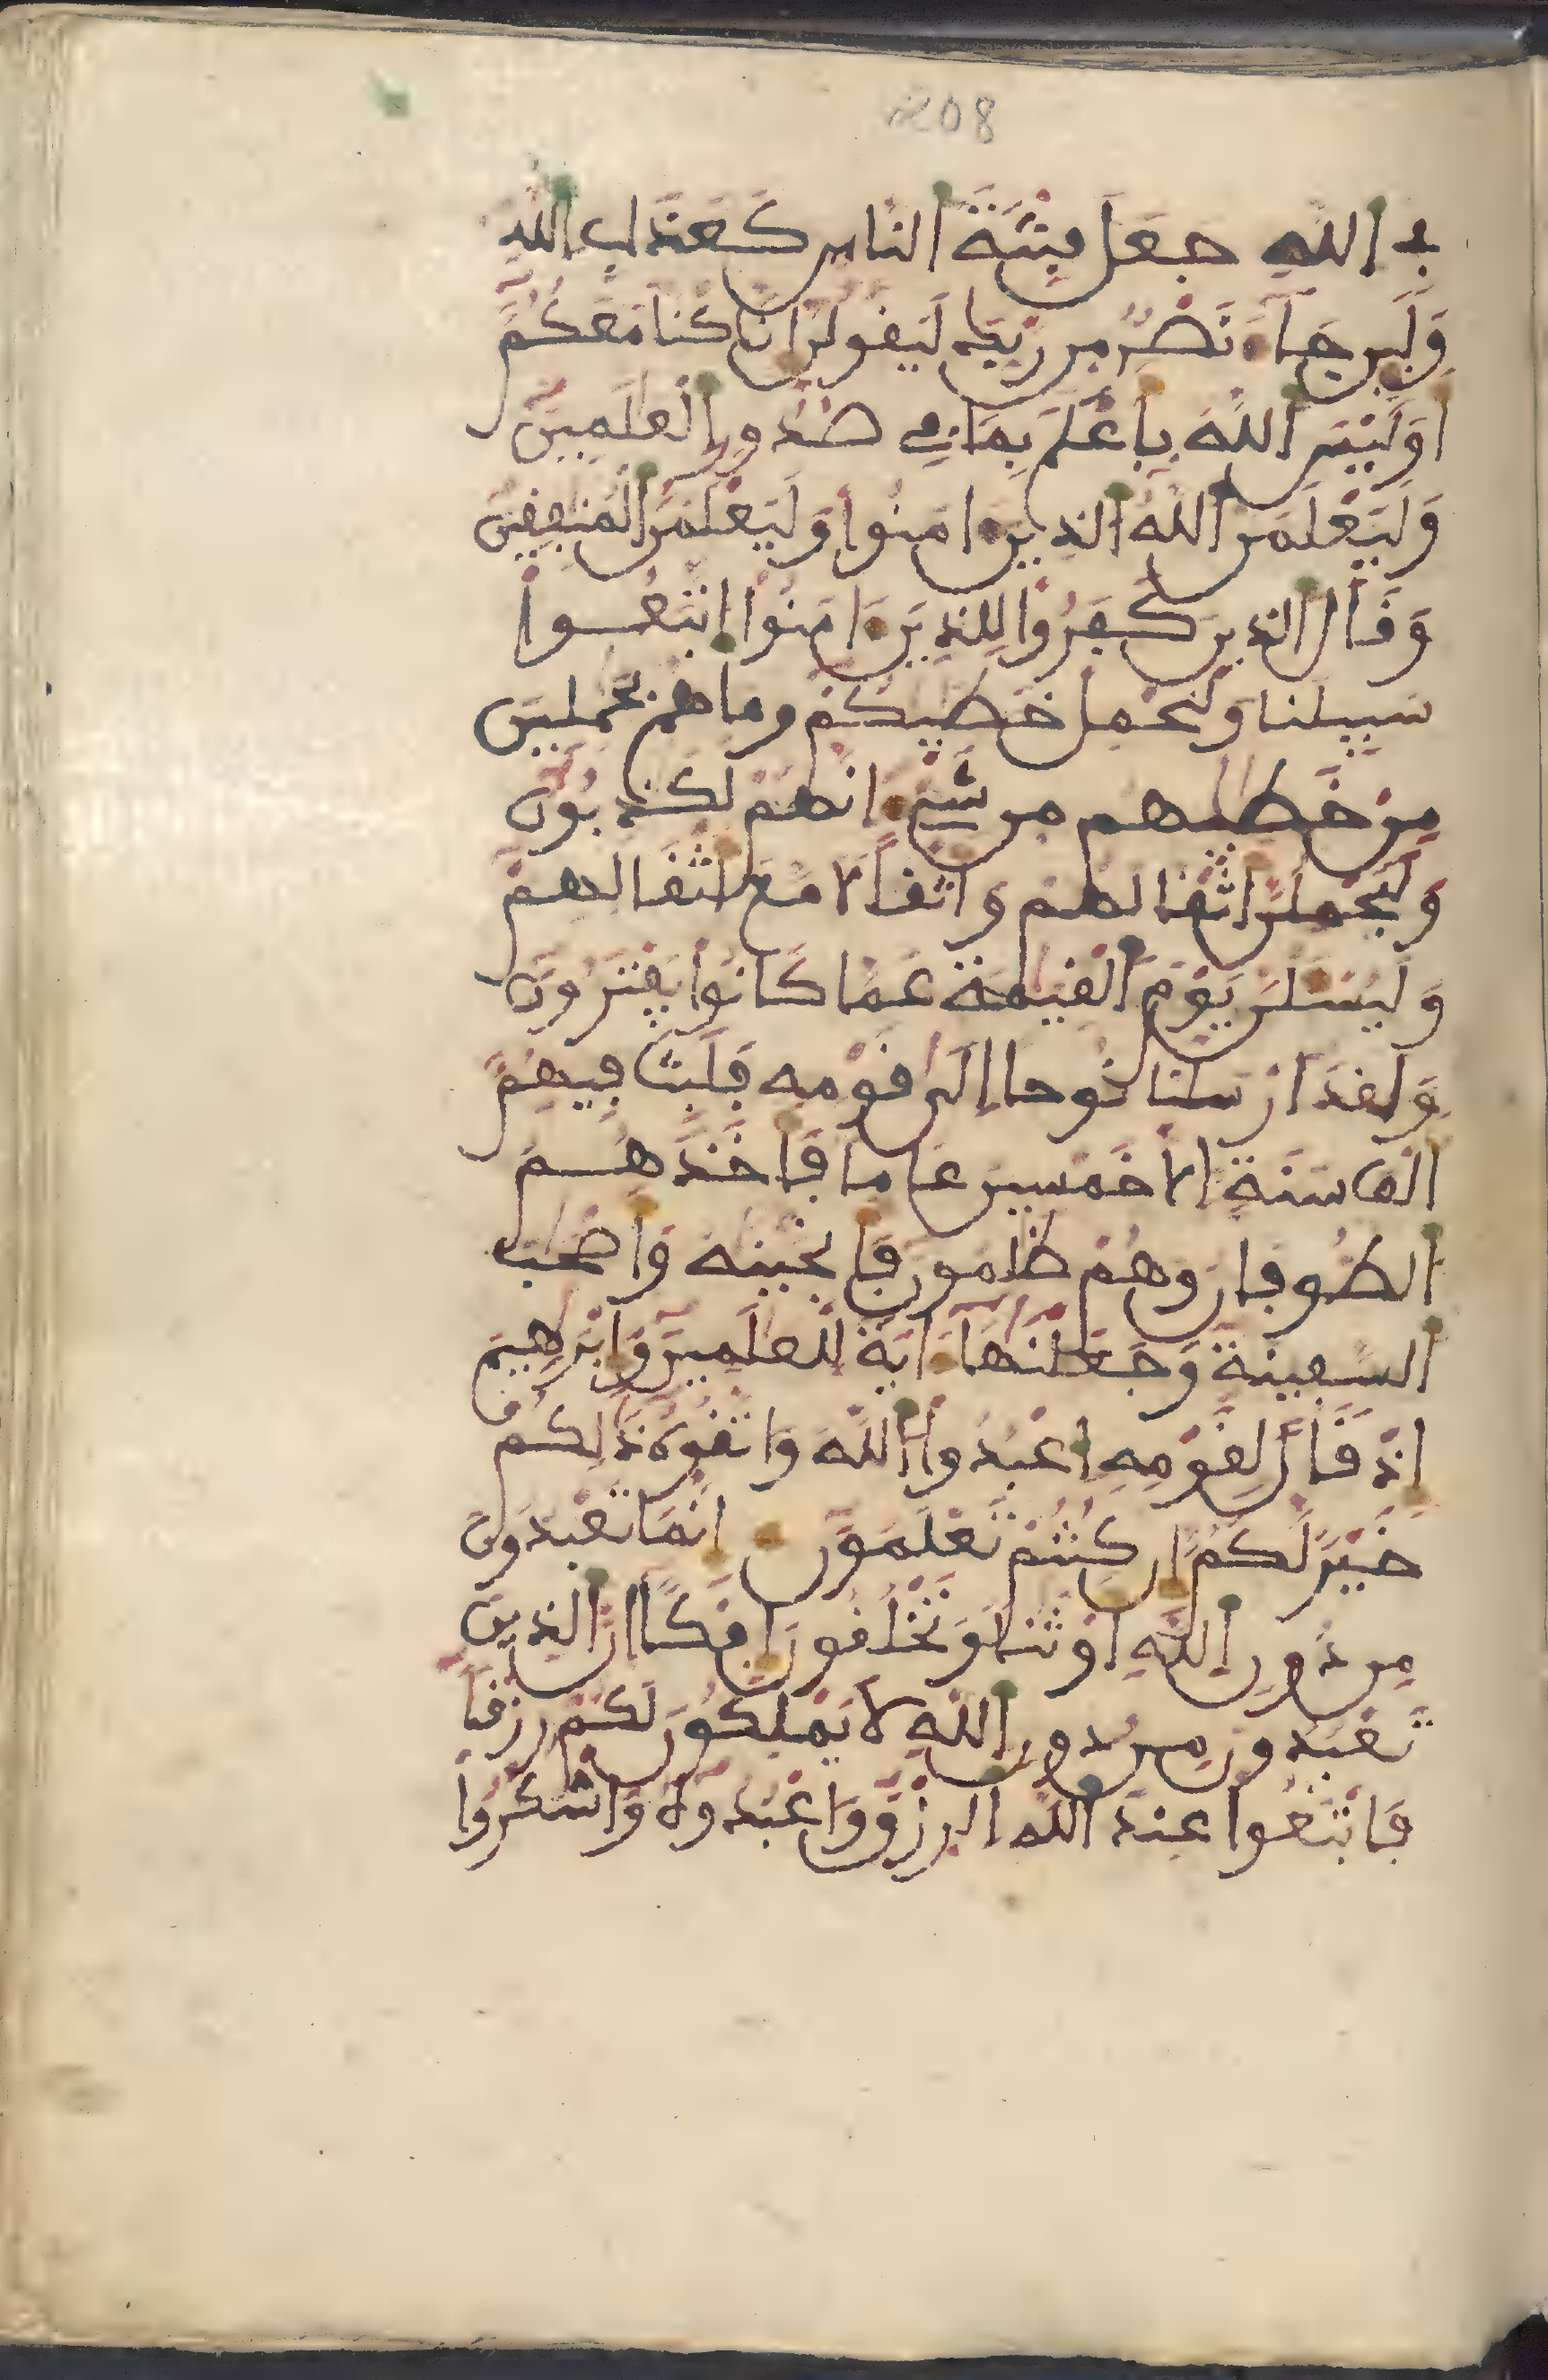 208
في الله جعل فتنة الناس كعذاب الله
ولين جاء نصر من ربك ليقولن انا كنا معكم
اوليس الله باعلم بما في صدور العلمين
وليعلمن الله الذين ءامنوا وليعلمن المنفقين
وقال الذين كفروا للذين ءامنوا اتبعوا
سبيلنا ولنحمل خطيكم وما هم بحملين
من خطيهم من شيء انهم لكذبون
وليحملن اثقالهم واثقالا مع اثقالهم
وليسلن يوم القيمة عما كانوا يفترون
ولقد ارسلنا نوحا الى قومه فلبث فيهم
الف سنة الا خمسين عاما فاخذهم
الطوفان وهم ظلمون فانجينه واصحب
السفينة وجعلنها ءاية للعلمين وابرهيم
اذ قال لقومه اعبدوا الله واتقوه ذلكم
خير لكم ان كنتم تعلمون انما تعبدون
من دون الله اوثنا وتخلقون افكا ان الذين
تعبدون من دون الله لا يملكون لكم رزقا
فابتغوا عند الله الرزق واعبدوه واشكروا